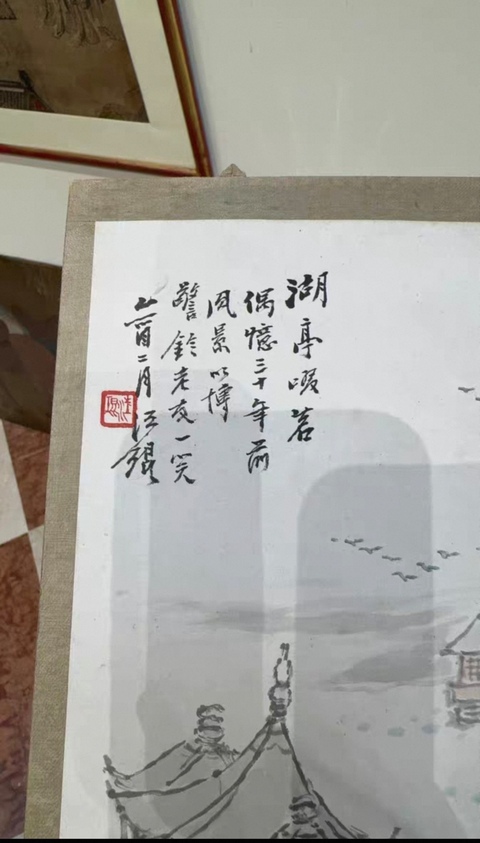 湖亭啜茗
偶憶三十年前
風景以博
警鈴老友一笑
乙酉二月江